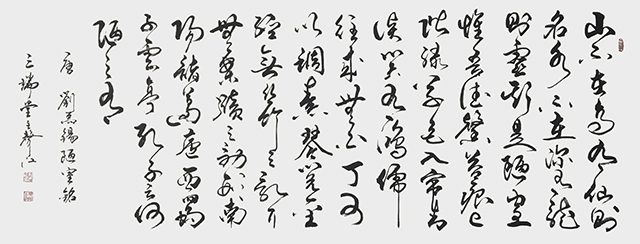 山不在高有仙則
名水不在深有龍
則靈斯是陋室
惟吾德馨苔痕上
階綠草色入帘青
談笑有鴻儒
往來無白丁可
以調素琴閱金
經無絲竹之亂耳
無案牘之勞形南
陽諸葛廬西蜀
子雲亭孔子云何
陋之有
唐 劉禹錫陋室銘
三瑞堂